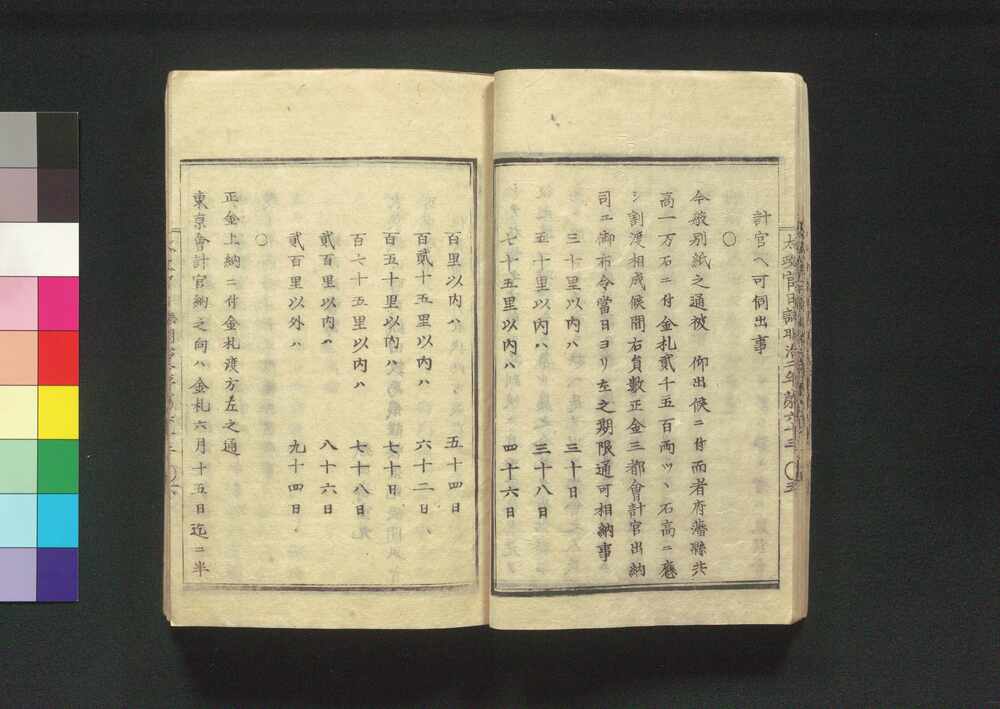 計官へ可伺出事
○
今般別紙之通被　仰出候ニ付而者府藩縣共
高一万石ニ付金札貳千五百両ツヽ石高ニ應
シ割渡相成候間右員數正金三都會計官出納
司エ御布令當日ヨリ左之期限通可相納事
三十里以内ハ　三十日
五十里以内ハ　三十八日
七十五里以内ハ　四十六日
百里以内ハ　五十四日
百貳十五里以内ハ　六十二日
百五十里以内ハ　七十日
百七十五里以内ハ　七十八日
貳百里以内ハ　八十六日
貳百里以外ハ　九十四日
○
正金上納ニ付金札渡方左之通
東京會計官納之向ハ金札六月十五日迄ニ半
太政官日誌明治二年第六十三